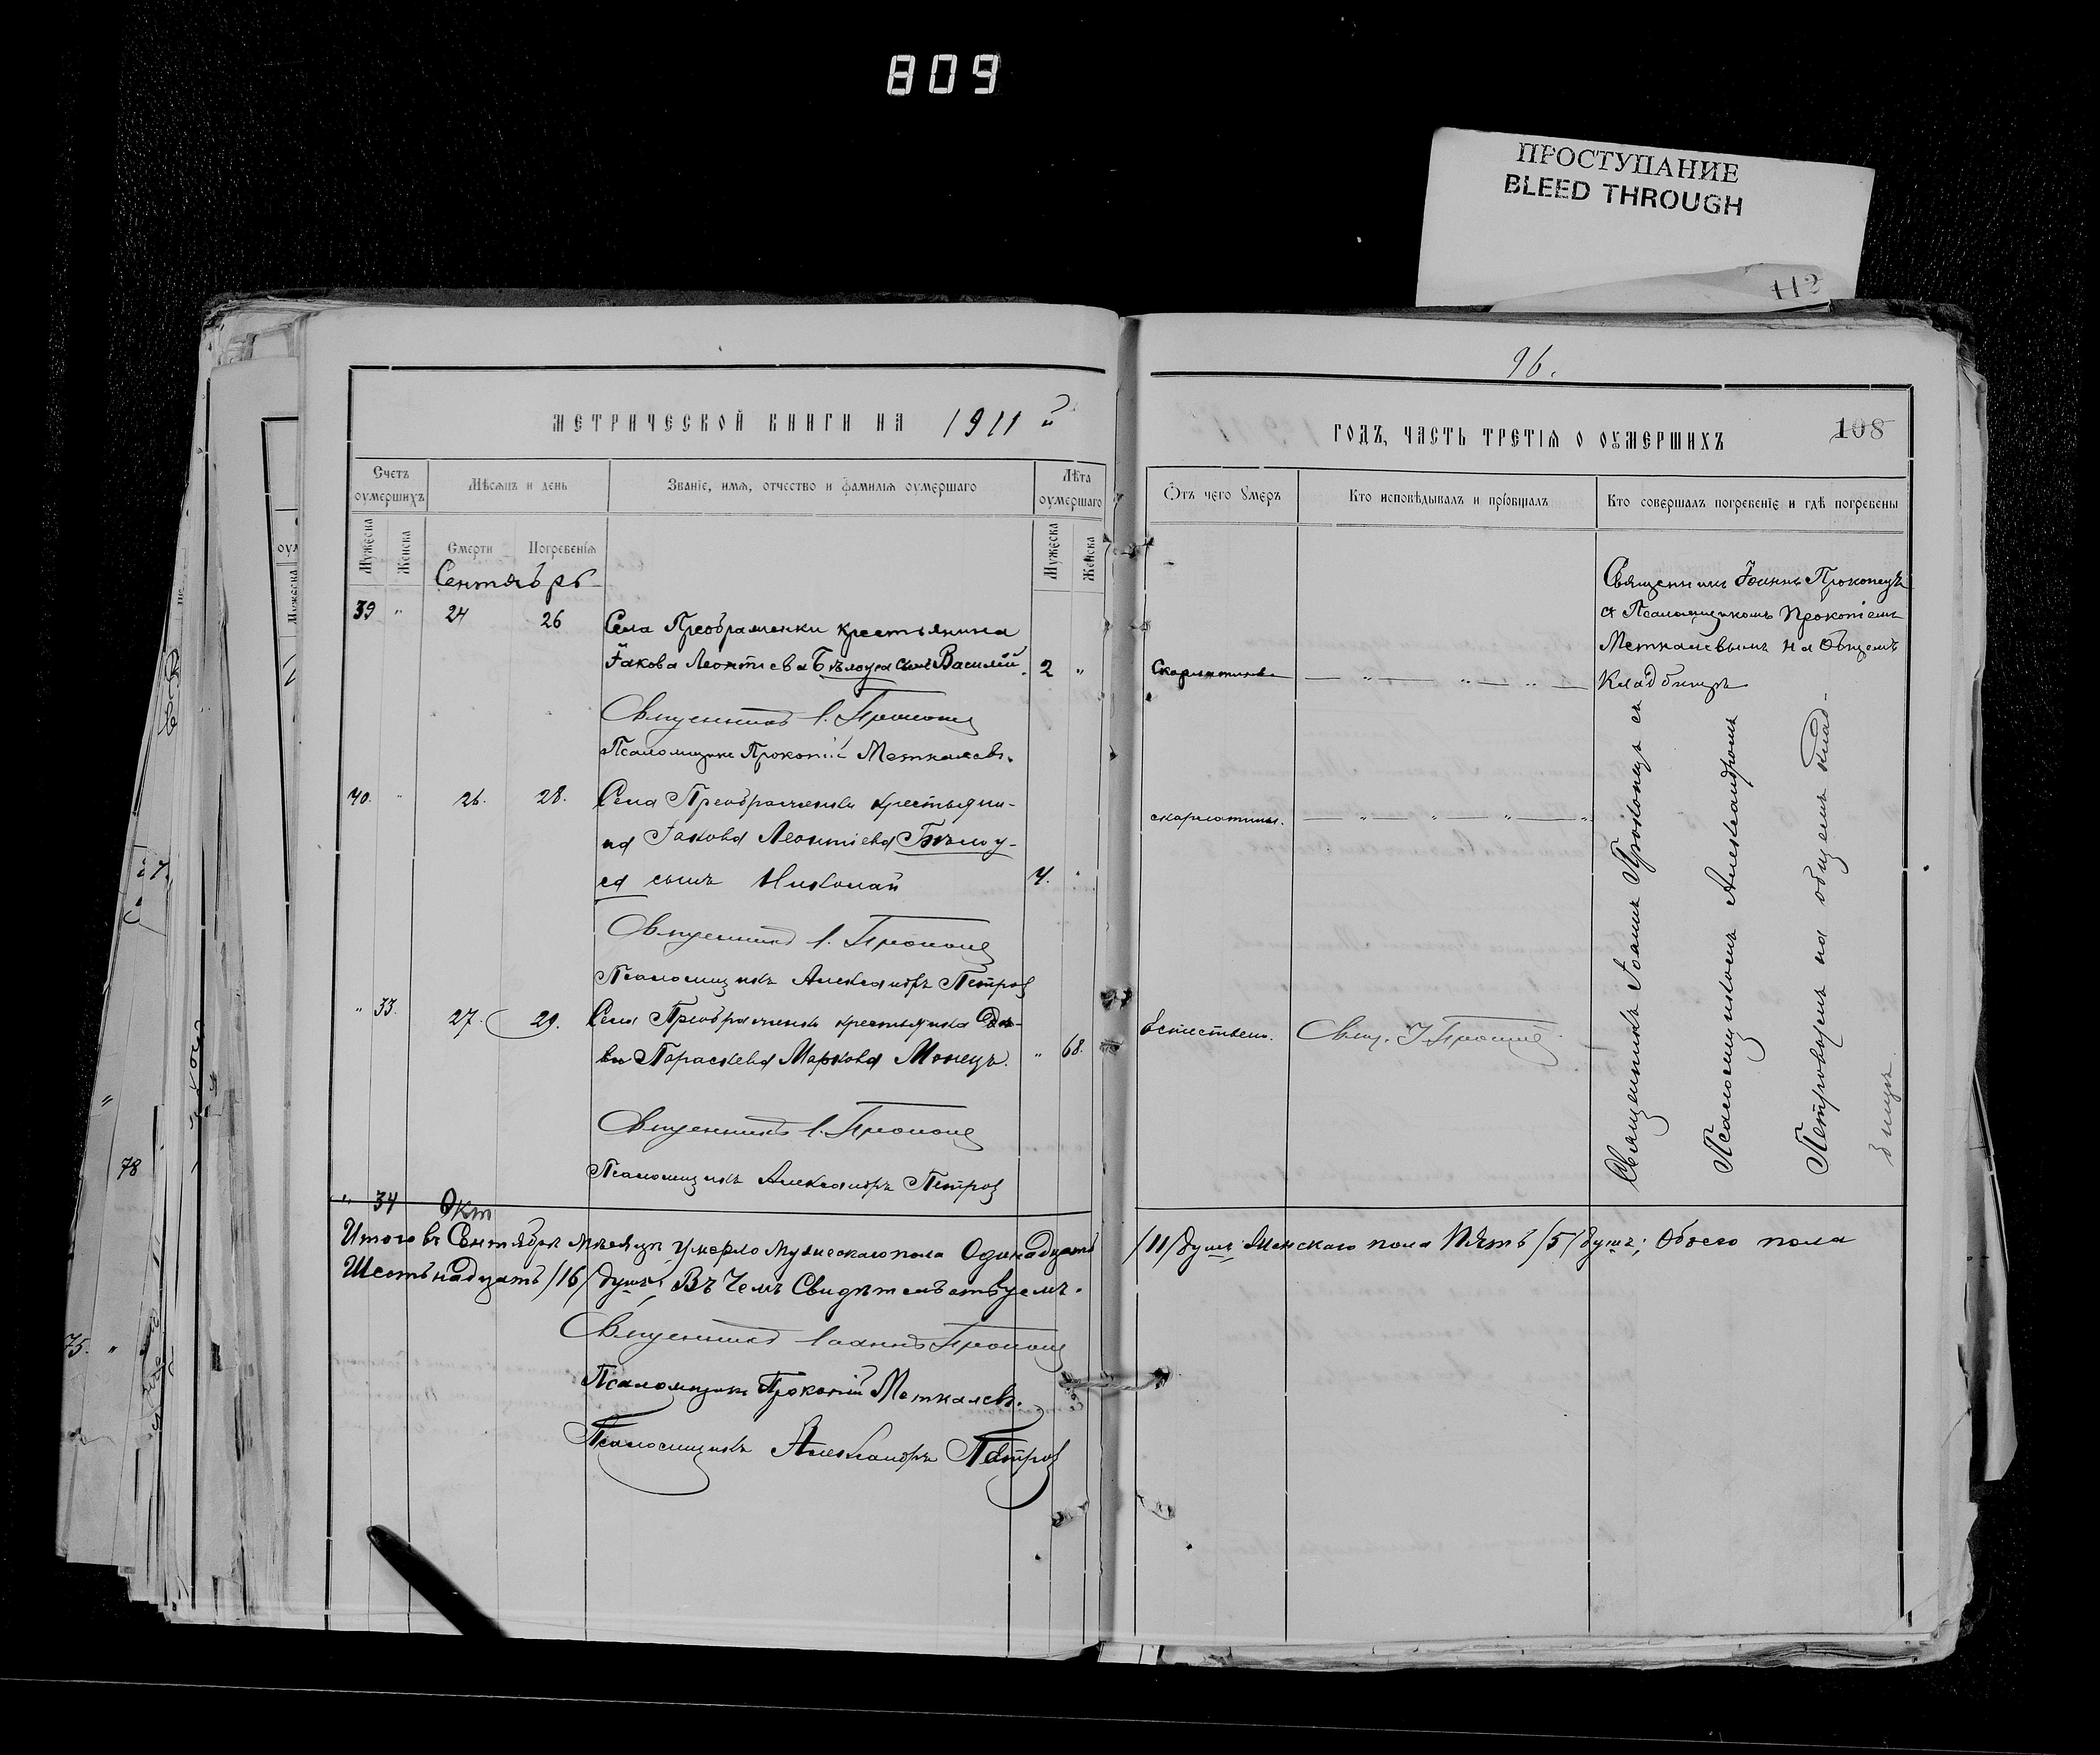 809
ПРОСТУПАНИЕ
BLEED THROUGH
112
96.
МЕТРИЧЕСКОЙ КНИГИ НА 1911
ГОДЪ, ЧАСТЬ ТРЕТІЯ О ОУМЕРШИХЪ
108
Счетъ оумершихъ
Мѣсяцъ и день
Званіе, имя, отчество и фамилія оумершаго
Лѣта оумершаго
Отъ чего Умеръ
Кто исповѣдывалъ и пріобщалъ
Кто совершалъ погребеніе и гдѣ погребены
Мужеска
Женска
Смерти
Погребенія
Мужеска
Женска
Сентябрь
39 " 24 26
Села Преображенки крестьянина
Іакова Леонтіева Бѣлоуса сынъ Василій.
2 "
Скарлатина
Священникъ Іоаннъ Прокопецъ
съ Псаломщикомъ Прокопіемъ
Меткалевымъ на общемъ
Кладбищѣ
Священникъ І. Прокопец
Псаломщикъ Прокопій Меткалевъ.
40. " 26. 28.
Села Преображенки крестьяни-
на Іакова Леонтіева Бѣлоу-
са сынъ Николай
4. "
скарлатины.
Священникъ І. Прокопец
Псаломщикъ Александръ Петров
" 33. 27. 29.
Села Преображенки крестьянка Вдо-
ва Параскева Маркова Монецъ.
" 68.
Естествен.
Свящ. І Прокопец
Священникъ Іоаннъ Прокопецъ съ
Псаломщикомъ Александромъ
Петровымъ на общемъ клад-
бищѣ
Священникъ І. Прокопец
Псаломщикъ Александръ Петров
" 34 Окт
Итого въ Сентябрѣ мѣсяцѣ умерло мужескаго пола Одинадцать /11/ душъ; Женскаго пола Пять /5/ душъ; Обоего пола
Шестьнадцать /16/ душъ; Въ Чемъ Свидѣтельствуемъ.
Священникъ Іоаннъ Прокопец
Псаломщикъ Прокопій Меткалевъ.
Псаломщикъ Александръ Петров
78
75. "